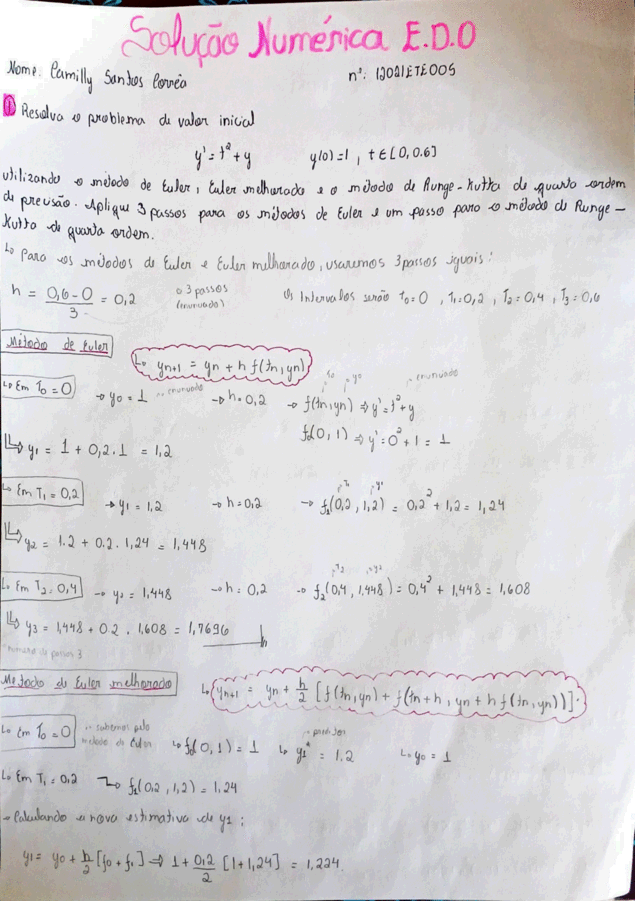 Solução Numérica E.D.O
Nome: Camilly Santos Corrêa nº: 12021ETE005
1 Resolva o problema de valor inicial
y' = t² + y y(0) = 1 , t ∈ [0, 0.6]
utilizando o método de Euler, Euler melhorado e o método de Runge-Kutta de quarta ordem
de precisão. Aplique 3 passos para os métodos de Euler e um passo para o método de Runge-
Kutta de quarta ordem.
↳ Para os métodos de Euler e Euler melhorado, usaremos 3 passos iguais:
h = (0,6 - 0)/3 = 0,2 → 3 passos (enunciado) Os Intervalos serão T₀ = 0 , T₁ = 0,2 , T₂ = 0,4 , T₃ = 0,6
Método de Euler ↳ yn+1 = yn + h f(tn, yn)
↳ Em T₀ = 0 → y₀ = 1 → enunciado → h = 0,2 → f(tn, yn) ⇒ y' = t² + y → enunciado
f₀(0, 1) ⇒ y' = 0² + 1 = 1
↳ y₁ = 1 + 0,2 . 1 = 1,2
↳ Em T₁ = 0,2 → y₁ = 1,2 → h = 0,2 → f₁(0,2 , 1,2) = 0,2² + 1,2 = 1,24
↳ y₂ = 1.2 + 0.2 . 1,24 = 1,448
↳ Em T₂ = 0,4 → y₂ = 1,448 → h = 0,2 → f₂(0,4 , 1,448) = 0,4² + 1,448 = 1,608
↳ y₃ = 1,448 + 0.2 . 1,608 = 1,7696
número de passos 3
Método de Euler melhorado ↳ yn+1 = yn + h/2 [f(tn, yn) + f(tn + h , yn + h f(tn, yn))].
↳ Em T₀ = 0 → sabemos pelo método de Euler ↳ f₀(0, 1) = 1 ↳ y₁* = 1,2 ↳ y₀ = 1
↳ Em T₁ = 0,2 ↳ f₁(0,2 , 1,2) = 1,24
→ Calculando a nova estimativa de y₁ :
y₁ = y₀ + h/2 [f₀ + f₁] ⇒ 1 + 0,2/2 [1 + 1,24] = 1,224.